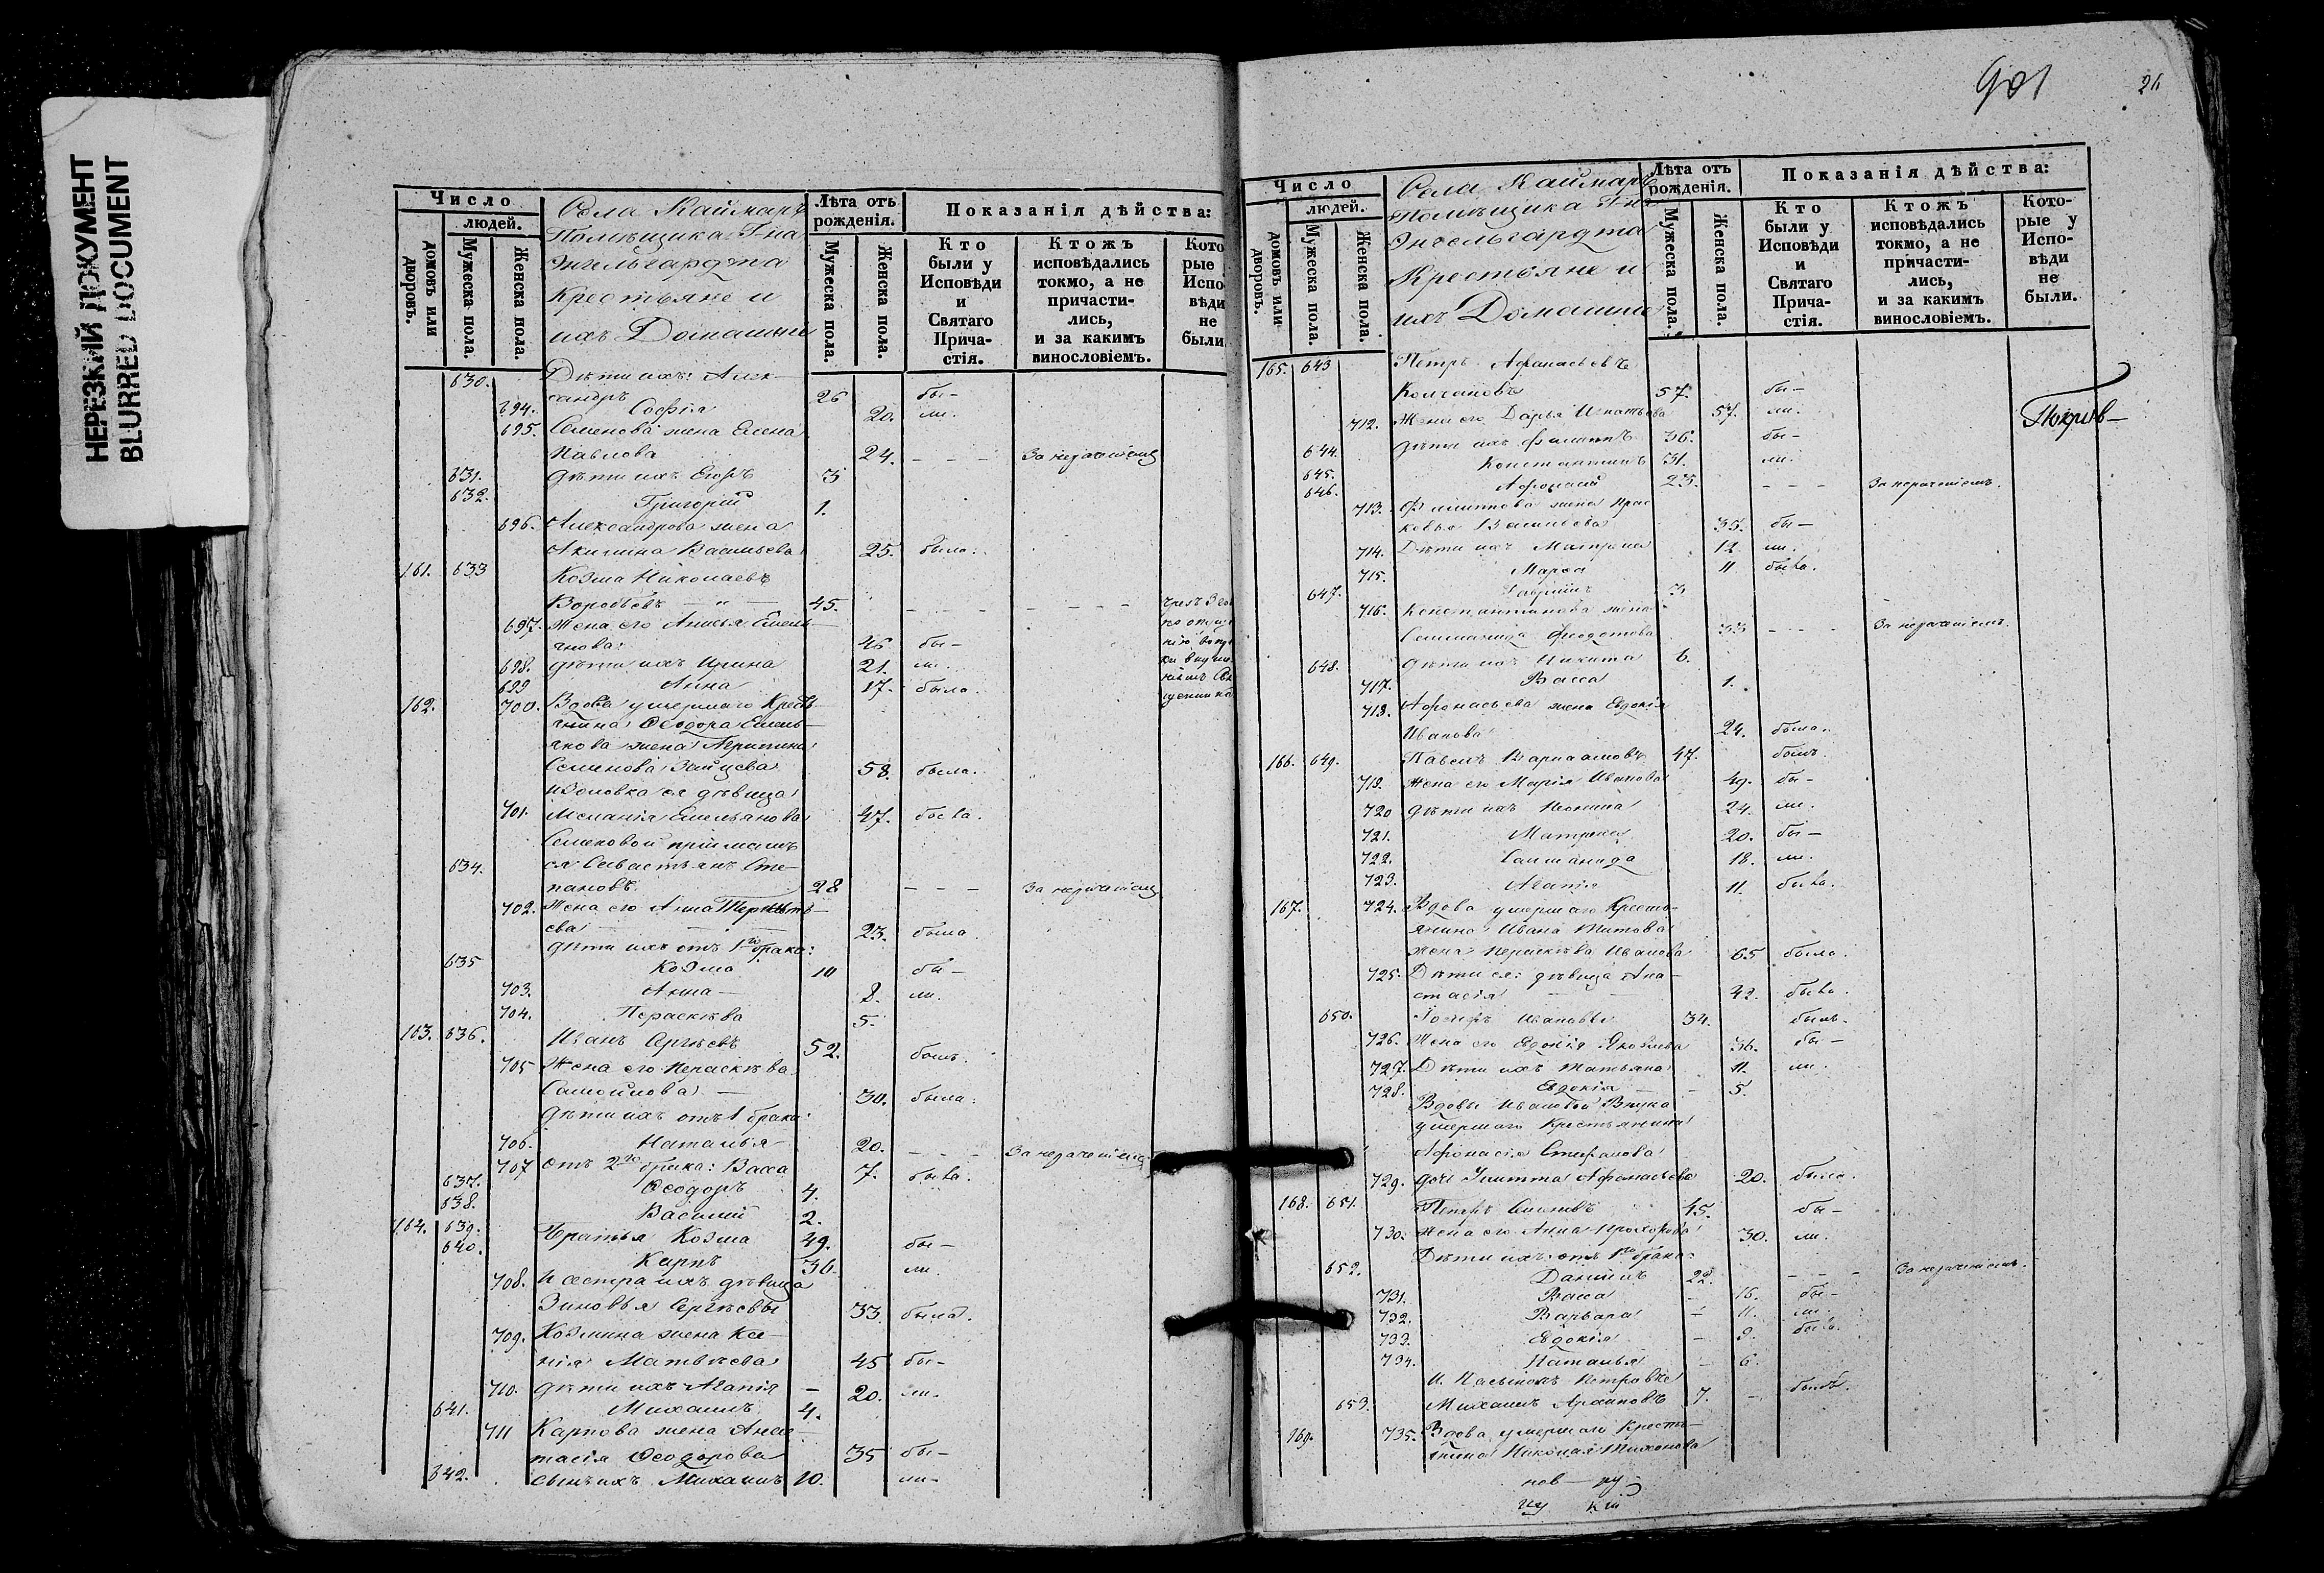 НЕРЕЗКИЙ ДОКУМЕНТ
BLURRED DOCUMENT
Число
людей.
домовъ или дворовъ.
Мужеска пола.
Женска пола.
Села Каймаръ
Помѣщика Г-на
Энгельгардта
Крестьяне и
ихъ Домашніе
Лѣта отъ рожденія.
Мужеска пола.
Женска пола.
Показанія дѣйства:
Кто были у Исповѣди и Святаго Причастія.
Ктожъ исповѣдались токмо, а не причастились, и за какимъ винословіемъ.
Кото рые Испо вѣди не были
630. Дѣти ихъ: Алек-
сандръ 26 бы-
694. Софія 20. ли.
695. Семенова жена Елена
Павлова 24. - - - За нераченіемъ
631. дѣти ихъ Егоръ 3
632. Григорій 1.
696. Александрова жена
Акилина Васильева 25. была.
161. 633 Козма Николаевъ
Воробьевъ 45. - - - - - - -
697. Жена его Анисья Емель-
янова 46 бы-
698. дѣти ихъ Ирина 21. ли.
699 Анна 17. была.
162. 700. Вдова умершаго Кресть-
янина Ѳеодора Емель-
янова жена Агрипина
Семенова Зайцева 58. была.
изоловка ея дѣвица
701. Меланія Емельянова 47. была.
Семеновой пріймышъ
634. ея Севастьянъ Сте-
пановъ 28 - - - За нераченіемъ
702. Жена его Анна Терентье-
ева 23. была
дѣти ихъ отъ 1го брака:
635 Козма 10 бы-
703. Анна - 8. ли.
704. Пераскѣва 5.
163. 636. Иванъ Сергѣевъ 52. былъ.
705 Жена его Пераскѣва
Самойлова - 30. была.
дѣти ихъ отъ 1 брака:
706. Наталья 20. - - - За нераченіемъ
707 отъ 2го брака: Васса 7. была.
637. Ѳеодоръ 4.
638. Василий 2.
164. 639. Братья Козма 49. бы-
640. Карпъ 36. ли.
708. И сестра ихъ дѣвица
Зиновья Сергѣевы 33. была.
709. Козмина жена Ксе-
нія Матвѣева 45 бы-
710. дѣти ихъ Агапія - 20. ли.
641. Михаилъ 4.
711 Карпова жена Анас-
тасія Ѳеодорова 35 бы-
642. сынъ ихъ Михаилъ 10. ли-
901
26
Число
людей.
домовъ или дворовъ.
Мужеска пола.
Женска пола.
Села Каймаръ
Помѣщика Г-на
Энгельгардта
Крестьяне и
ихъ Домашніе
Лѣта отъ рожденія.
Мужеска пола.
Женска пола.
Показанія дѣйства:
Кто были у Исповѣди и Святаго Причастія.
Ктожъ исповѣдались токмо, а не причастились, и за какимъ винословіемъ.
Кото-рые у Испо-вѣди не были.
165. 643 Петръ Афанасьевъ
Колчановъ 57. бы-
712. Жена его Дарья Игнатьева 57. ли.
644. дѣти ихъ Филиппъ 36. бы-
645. Константинъ 31. ли.
646. Афонасій 23. - - - За нераченіемъ.
713. Филиппова жена Прас-
ковья Васильева 35. бы-
714. Дѣти ихъ Матрона 12. ли.
715. Марфа 11 была.
647. Гавріилъ 3
716. Константинова жена
Соломанида Федотова 33 - - - За нераченіемъ.
648. дѣти ихъ Никита 6.
717. Васса 1.
718. Афонасьева жена Евдокія
Иванова 24. была.
166. 649. Павелъ Варлаамовъ 47. былъ.
719. Жена его Марія Иванова 49. бы-
720 дѣти ихъ Неонила 24. ли.
721. Матрона 20. бы-
722. Саломанида 18. ли.
723. Агапія 11. была.
167. 724. Вдова умершаго Кресть-
янина Ивана Титова
жена Пераскѣва Иванова 65 была.
725. Дѣти ея: дѣвица Ана-
стасія 42. была.
650. Ивановъ 34. былъ.
726. Жена его Евдокія Яковлева 36. бы-
727. Дѣти ихъ Татьяна 11. ли.
728. Евдокія - 5.
Вдовы Ивановой Внука
умершаго Крестьянина
Афонасія Стефанова
729. дочь Улитта Афонасьева 20. была.
168. 651. Петръ 45. бы-
730. Жена его Анна Прохорова 30. ли.
Дѣти ихъ отъ 1го брака:
652. Даниилъ 22. - - - За нераченіемъ.
731. Васса - 16. бы-
732. Варвара - 11. ли.
733. Евдокія - 9. была.
734. Наталья - 6.
И Пасынокъ Петровъ
653. Михаилъ 7. - былъ.
169. 735. Вдова умершаго Кресть-
янина Николая Тихонова